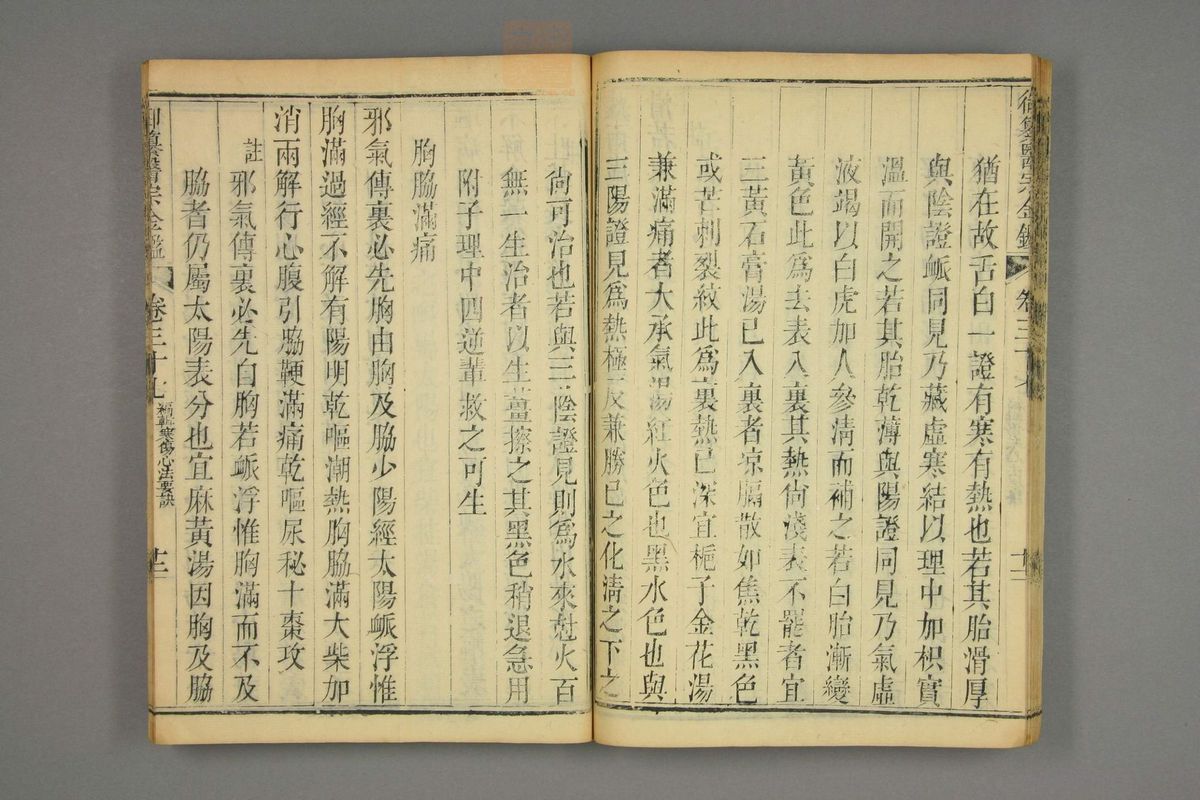 御纂醫宗金鑑 卷三十九
猶在故舌白一證有寒有熱也若其胎滑厚
與陰證脈同見乃藏虛寒結以理中加枳實
溫而開之若其胎乾薄與陽證同見乃氣虛
液竭以白虎加人參清而補之若白胎漸變
黃色此爲去表入裏其熱尙淺表不罷者宜
三黃石膏湯已入裏者凉膈散如焦乾黑色
或芒刺裂紋此爲裏熱已深宜梔子金花湯
兼滿痛者大承氣湯紅火色也黑水色也與
三陽證見爲熱極反兼勝己之化清之下之
尙可治也若與三陰證見則爲水來尅火百
無一生治者以生薑擦之其黑色稍退急用
附子理中四逆輩救之可生
胸脇滿痛
邪氣傳裏必先胸由胸及脇少陽經太陽脈浮惟
胸滿過經不解有陽明乾嘔潮熱胸脇滿大柴加
消兩解行心腹引脇鞕滿痛乾嘔尿秘十棗攻
註
邪氣傳裏必先自胸若脈浮惟胸滿而不及
脇者仍屬太陽表分也宜麻黃湯因胸及脇
御纂醫宗金鑑 卷三十九 編輯寒傷心法要訣 十二